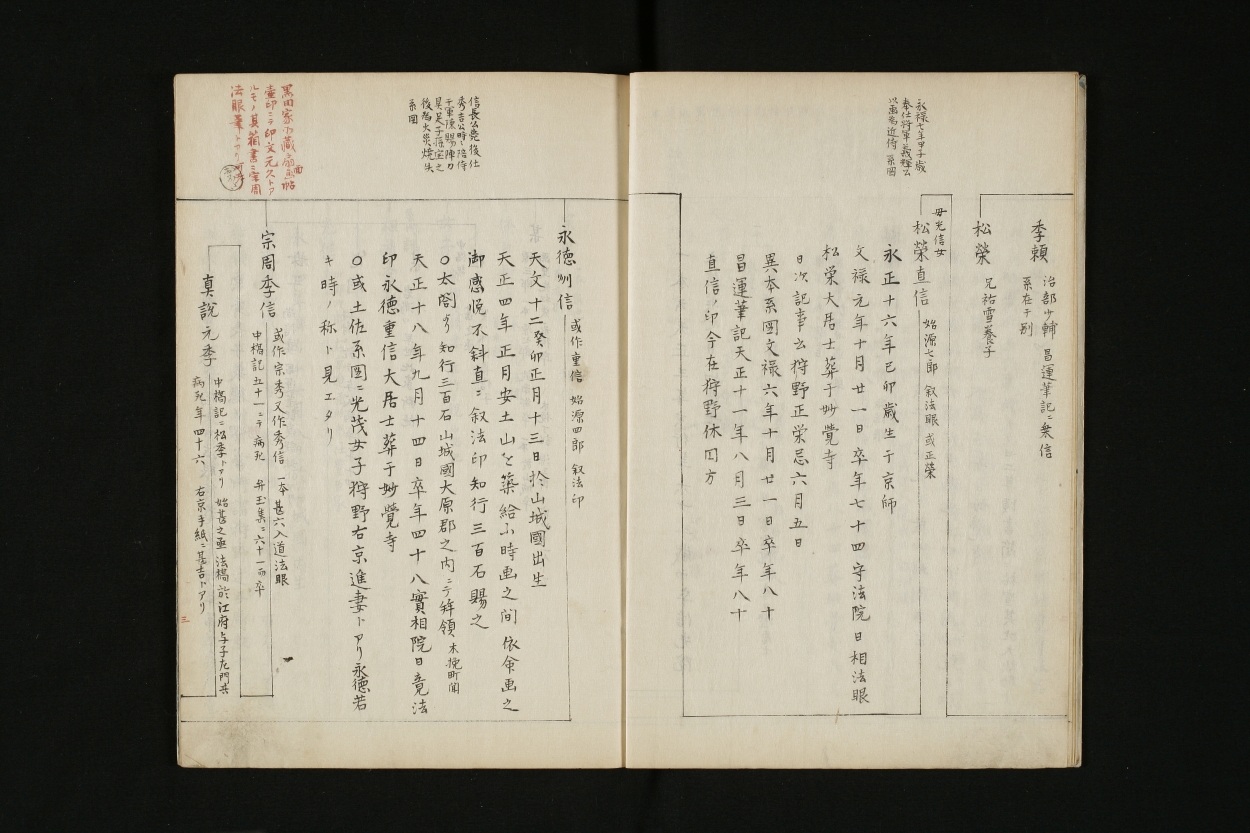 季頼
治部少輔 昌運筆記ニ乗信
系在于別
松榮
兄祐雪養子
母光信女
永禄七年甲子歳
奉仕将軍義輝公
以画為近侍 系図
松榮直信
始源七郎 叙法眼 或正榮
永正十六年己卯歳生于京師
文禄元年十月廿一日卒年七十四字法院曰相法眼
松栄大居士葬于妙覺寺
日次記事云狩野正栄忌六月五日
異本系圖文禄六年十月廿一日卒年八十
昌運筆記天正十一年八月三日卒年八十
直信ノ印今在狩野休円方
信長公薨後仕
秀吉公時々陪侍
于軍陳賜陣刀
具足子孫宝之
後為火災焼失
系図
永德州信
或作重信 始源四郎 叙法印
天文十二癸卯正月十三日於山城國出生
天正四年正月安土山を築給ふ時画之间依命画之
御感悦不斜直ニ叙法印知行三百石賜之
〇太閤より知行三百石山城國大原郡之内ニテ拝領 木挽町聞
天正十八年九月十四日卒年四十八實相院曰竟法
印永德重信大居士葬于妙覺寺
〇或土佐系圖ニ光茂女子狩野右京進妻トアリ永德若
キ時ノ称ト見エタリ
黒田家所蔵扇面画帖
壷印ニテ印文元久トア
ルモノ其箱書ニ宗周
法眼筆トアリ
宗周季信
或作宗秀又作秀信 一本甚六入道法眼
中橋記五十一ニテ病死 弁玉集ニ六十一而卒
真說元季
中橋記ニ松季トアリ 始甚之丞 法橋 於江府与子左門共
病死年四十六 右京手紙ニ甚吉トアリ
三